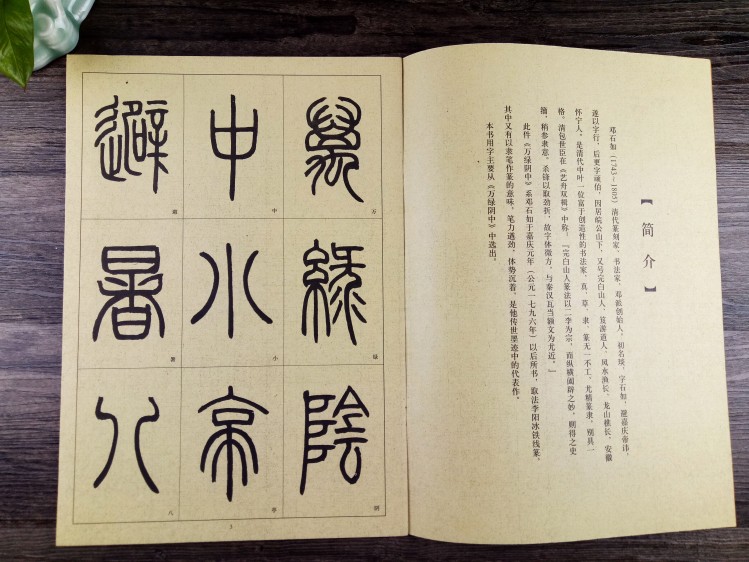 【简介】
邓石如（1743—1805）清代篆刻家、书法家，邓派创始人，初名琰，字石如，避嘉庆帝讳，
遂以字行，后更字顽伯，因居皖公山下，又号完白山人、笈游道人、凤水渔长、龙山樵长，安徽
怀宁人，是清代中叶一位富于创造性的书法家，真、草、隶、篆无一不工。尤精篆隶，别具一
格。清包世臣在《艺舟双楫》中称：「完白山人篆法以二李为宗，而纵横阖辟之妙，则得之史
籀，稍参隶意，杀锋以取劲折，故字体微方，与秦汉瓦当额文为尤近。」
此件《万绿阴中》系邓石如于嘉庆元年（公元一七九六年）以后所书，取法李阳冰铁线篆，
其中又有以隶笔作篆的意味，笔力遒劲，体势沉着，是他传世墨迹中的代表作。
本书用字主要从《万绿阴中》中选出。
萬
万
綠
绿
陰
阴
中
中
小
小
亭
亭
避
避
暑
暑
八
八
3